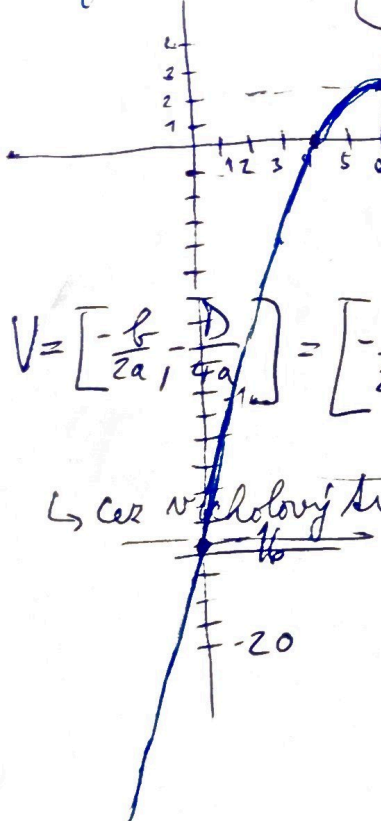 4
3
2
1
1 2 3 4 5
V = [-b/2a, -D/4a] = [-
↳ cez vrcholový
-16
-20